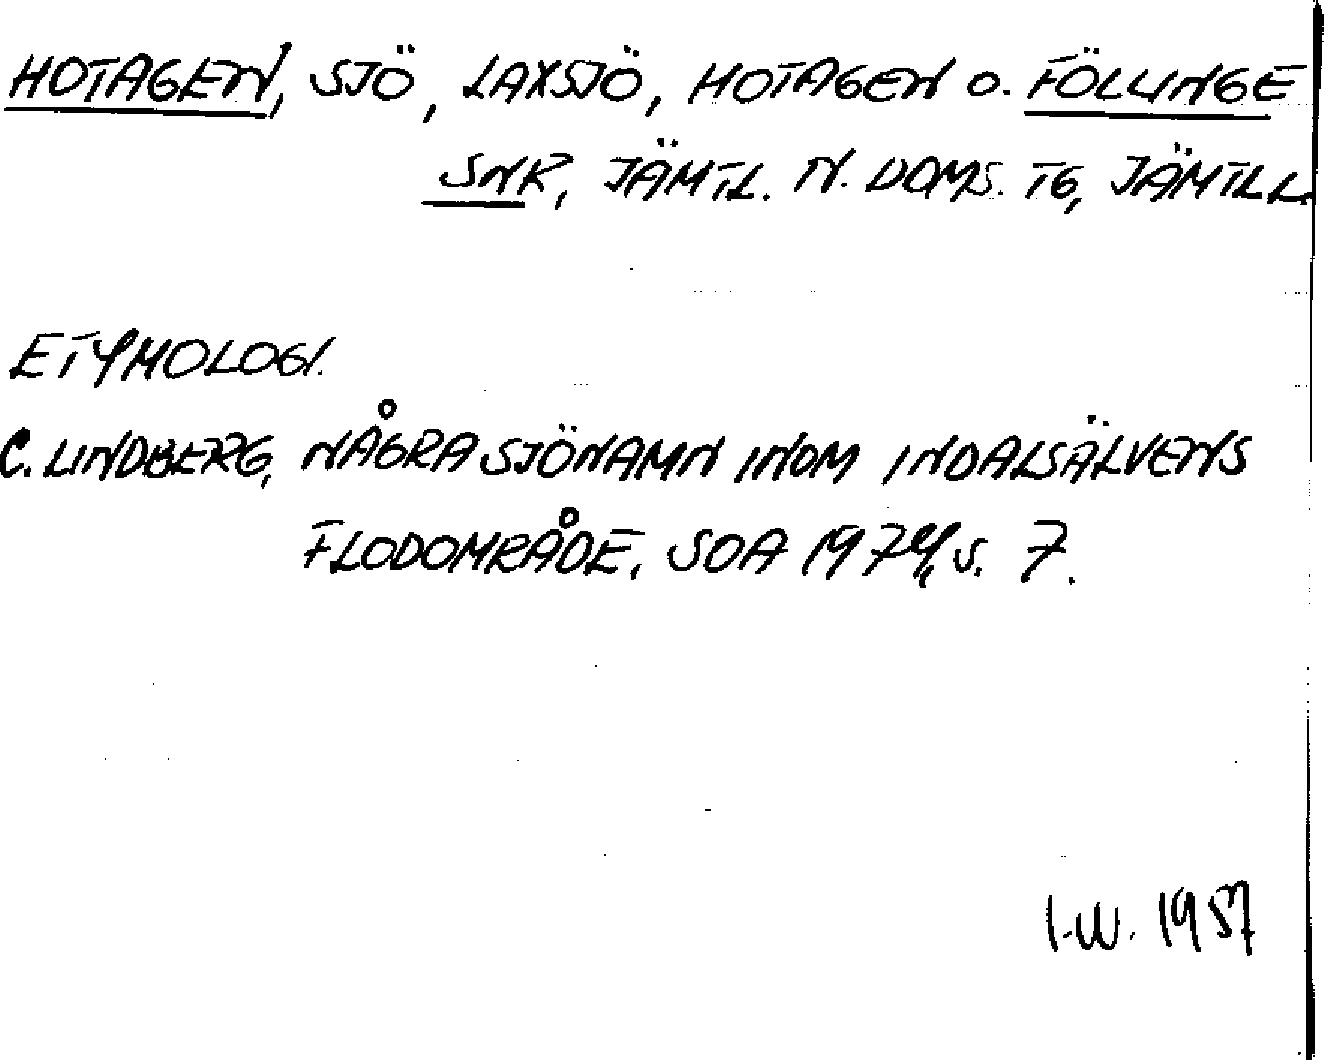 HOTAGEN, SJÖ, LAXSJÖ, HOTAGEN O. FÖLLINGE
SNR, JÄMTL. N. DOMS. TG, JÄMTLL
ETYMOLOGI.
C. LINDBERG, NÅGRA SJÖNAMN INOM INDALSÄLVENS
FLODOMRÅDE, SOA 1974, S. 7.
I.W. 1957